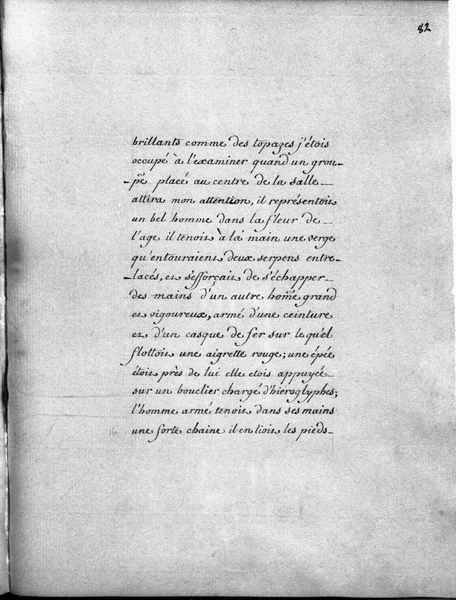 82
brillants comme des topazes j'étois
occupé à l'examiner quand un grou-
-pe placé au centre de la salle
attira mon attention, il représentoit
un bel homme dans la fleur de
l'age il tenoit à la main une verge
qu'entouraient deux serpens entre-
-lacés, et s'efforçait de s'échapper
des mains d'un autre home grand
et vigoureux, armé d'une ceinture
et d'un casque de fer sur le quel
flottoit une aigrette rouge; une épée
étoit près de lui elle etois appuyée
sur un bouclier chargé d'hieroglyphes;
l'homme armé tenoit dans ses mains
une forte chaine il en lioit les pieds